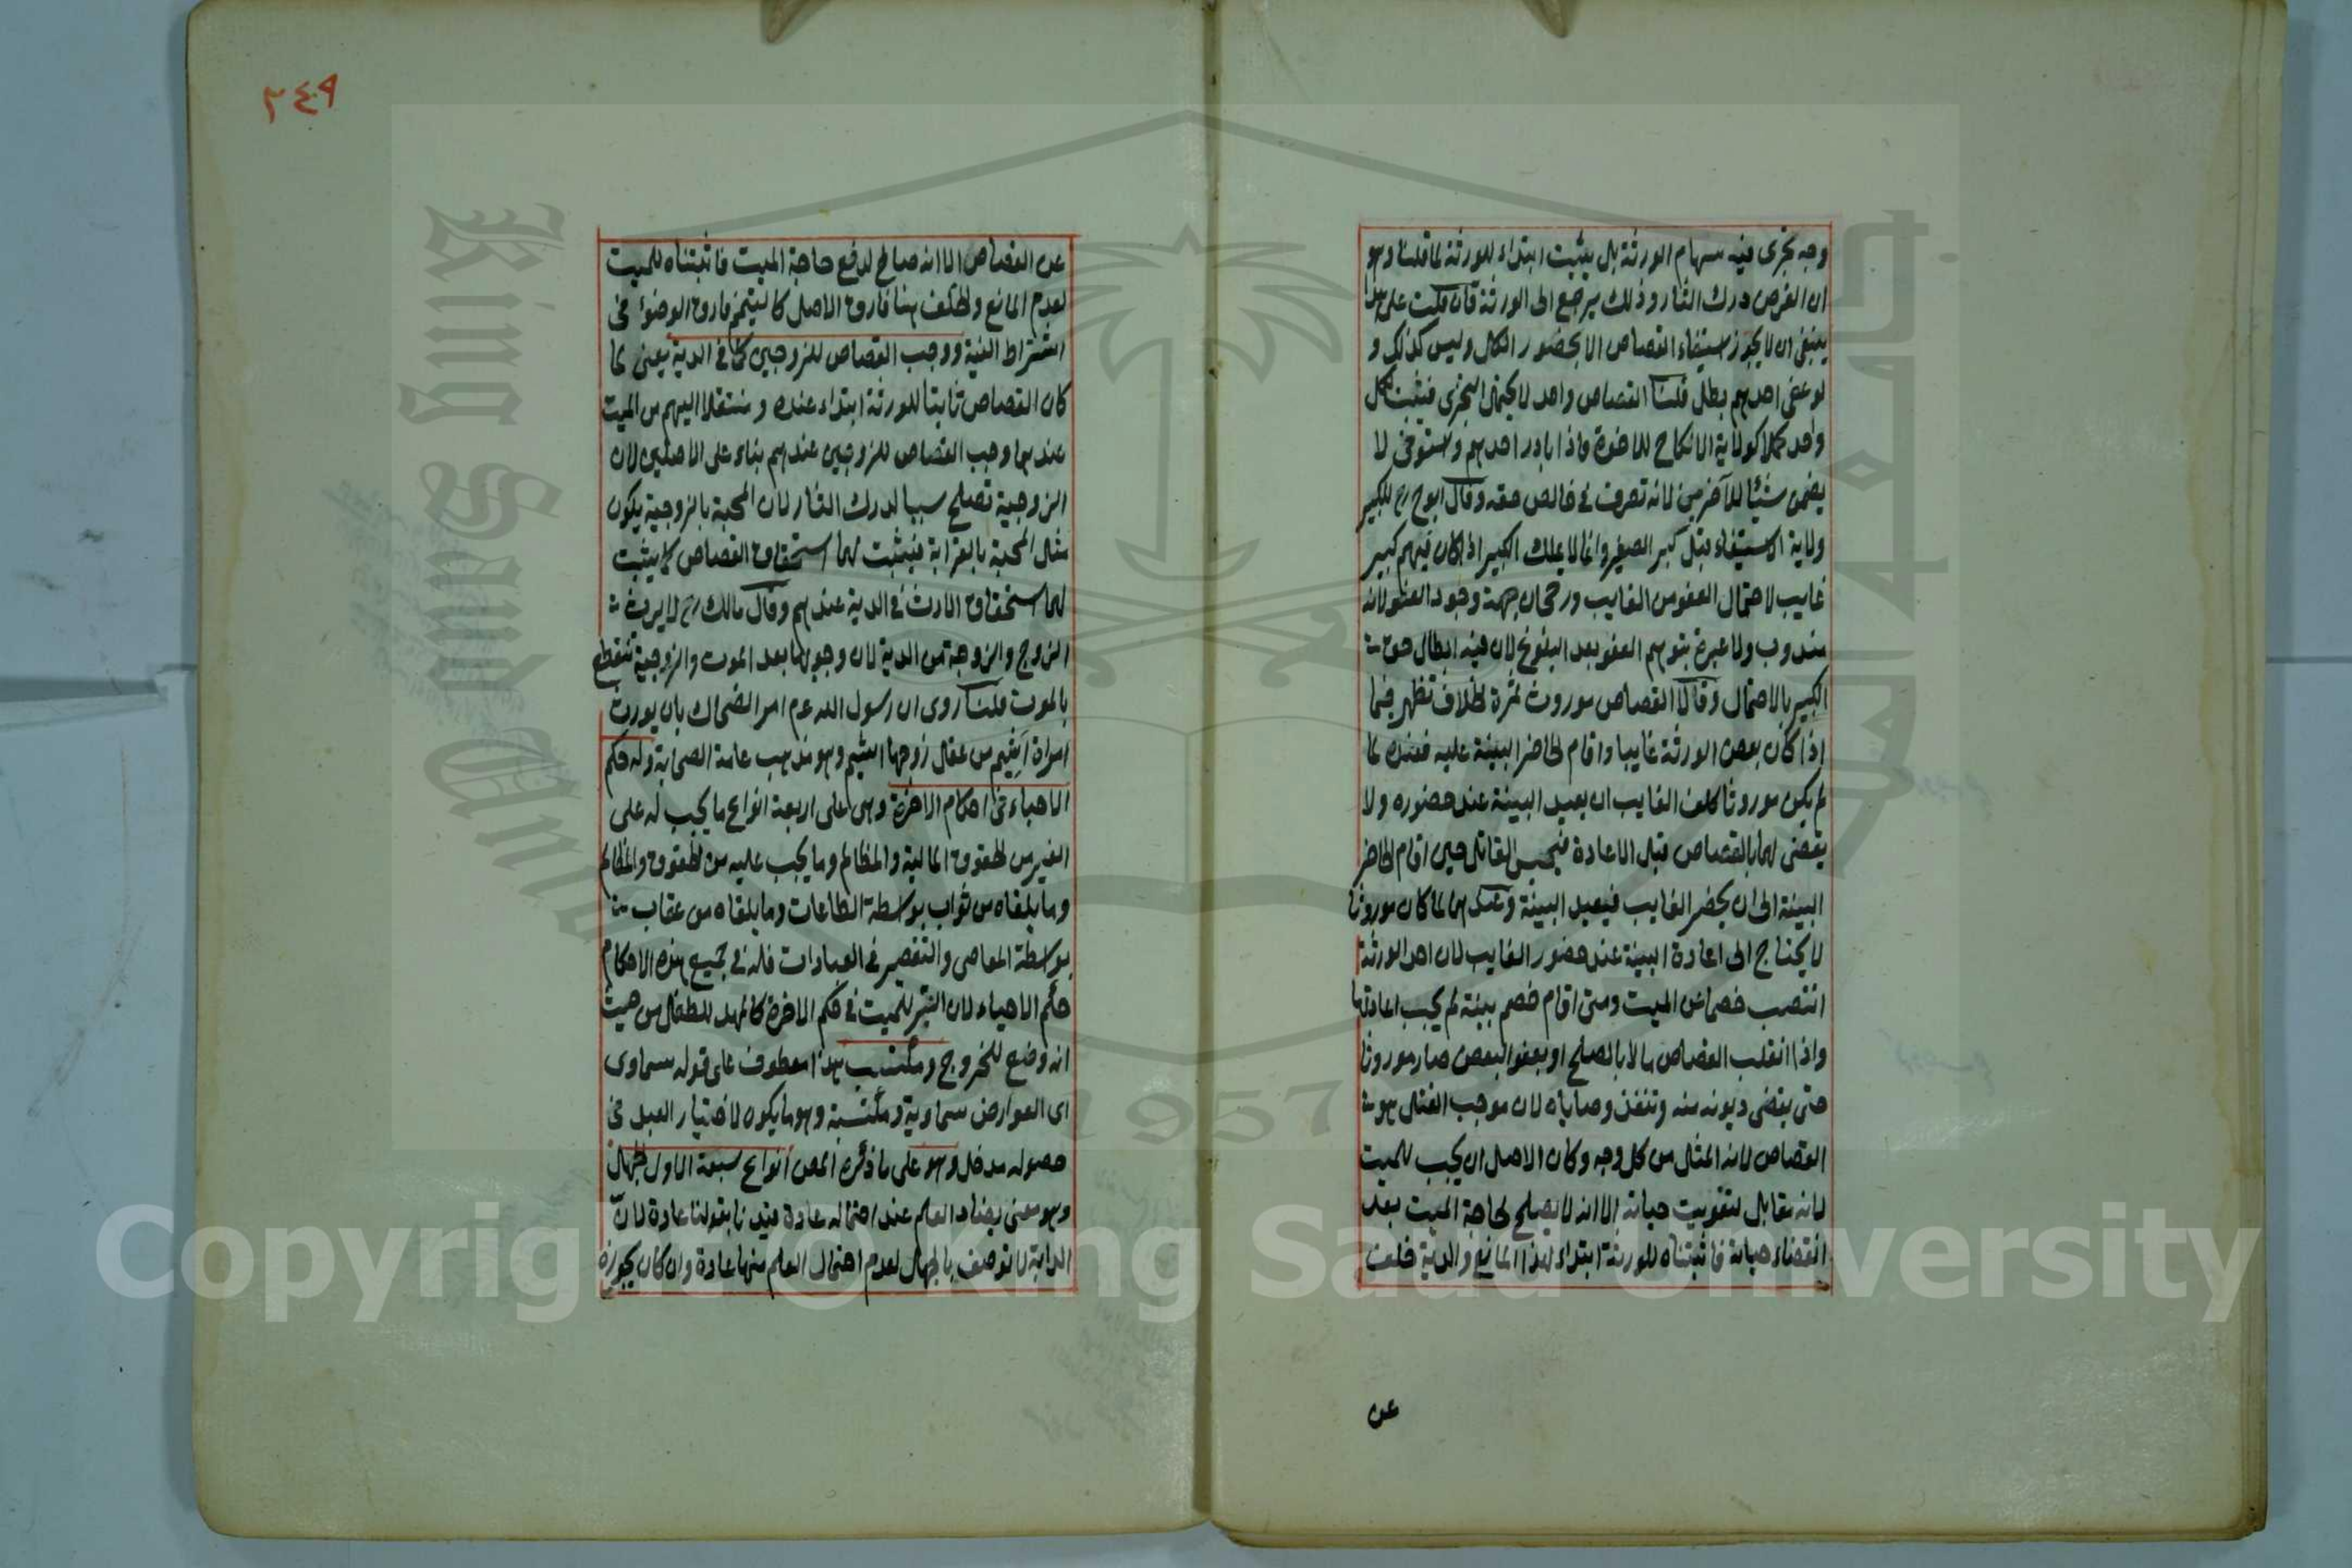 وجه تجزى فيه سهام الورثة بل يثبت ابتداء للورثة لما قلنا وهو
ان الغرض درك الثار وذلك يرجع الى الورثة فان قلت على هذا
ينبغى ان لا يجوز استيفاء القصاص الا بحضور الكل وليس كذلك و
لو عفى احدهم بطل قلنا القصاص واحد لا يحتمل التجزى فيثبت لكل
واحد كملا كولاية الانكاح للاخوة فاذا بادر احدهم واستوفى لا
يضمن شيئا للآخرين لانه تصرف فى خالص حقه وقال ابو ح رح للكبير
ولاية الاستيفاء قبل كبر الصغير وانما لا يملك الكبير اذا كان فيهم كبير
غايب لاحتمال العفو من الغايب ورجحان جهة وجود العفو لانه
مندوب ولا عبرة بتوهم العفو بعد البلوغ لان فيه ابطال حق
الكبير بالاحتمال وقالا القصاص موروث ثمرة الخلاف تظهر فيما
اذا كان بعض الورثة غايبا واقام الحاضر البينة عليه فعنده لما
لم يكن موروثا كلف الغايب ان يعيد البينة عند حضوره ولا
يقضى لهما بالقصاص قبل الاعادة فيحبس القاتل حين اقام الحاضر
البينة الى ان يحضر الغايب فيعيد البينة وعندهما لما كان موروثا
لا يحتاج الى اعادة البينة عند حضور الغايب لان احد الورثة
انتصب خصما عن الميت ومتى اقام خصم بينة لم يجب اعادتها
واذا انقلب القصاص مالا بالصلح او بعفو البعض صار موروثا
حتى يقضى ديونه منه وتنفذ وصاياه لان موجب القتل هو
القصاص لانه المثل من كل وجه وكان الاصل ان يجب للميت
لانه مقابل لتفويت حياته الا انه لا يصلح لحاجة الميت بعد
انقضاء حياته فاثبتناه للورثة ابتداء لهذا المانع والدية خلف
عن
٢٤٩
عن القصاص الا انه صالح لدفع حاجة الميت فاثبتناه للميت
لعدم المانع والخلف هنا فارق الاصل كالتيمم فارق الوضوء فى
اشتراط النية ووجب القصاص للزوجين كما فى الدية يعنى لما
كان القصاص ثابتا للورثة ابتداء عنده ومنتقلا اليهم من الميت
عندهما وجب القصاص للزوجين عندهم بناء على الاصلين لان
الزوجية تصلح سببا لدرك الثار لان المحبة بالزوجية يكون
مثل المحبة بالقرابة فيثبت لهما استحقاق القصاص كما يثبت
لهما استحقاق الارث فى الدية عندهم وقال مالك رح لا يرث
الزوج والزوجة من الدية لان وجوبها بعد الموت والزوجية تنقطع
بالموت قلنا روى ان رسول الله عم امر الضحاك بان يورث
امراة اشيم من عقل زوجها اشيم وهو مذهب عامة الصحابة وله حكم
الاحياء فى احكام الاخرة وهى على اربعة انواع ما يجب له على
الغير من الحقوق المالية والمظالم وما يجب عليه من الحقوق والمظالم
وما يلقاه من ثواب بواسطة الطاعات وما يلقاه من عقاب
بواسطة المعاصى والتقصير فى العبادات فله فى جميع هذه الاحكام
حكم الاحياء لان القبر للميت فى حكم الاخرة كالمهد للطفل من حيث
انه وضع للخروج ومكتسب هذا معطوف على قوله سماوى
اى العوارض سماوية ومكتسبة وهو ما يكون لاختيار العبد فى
حصوله مدخل وهو على ما ذكره المص انواع سبعة الاول الجهل
وهو معنى يضاد العلم عند احتماله عادة قيدنا بقولنا عادة لان
الدابة لا توصف بالجهل لعدم احتمال العلم منها عادة وان كان يجوزه
King Saud University
1957
Copyright © King Saud University